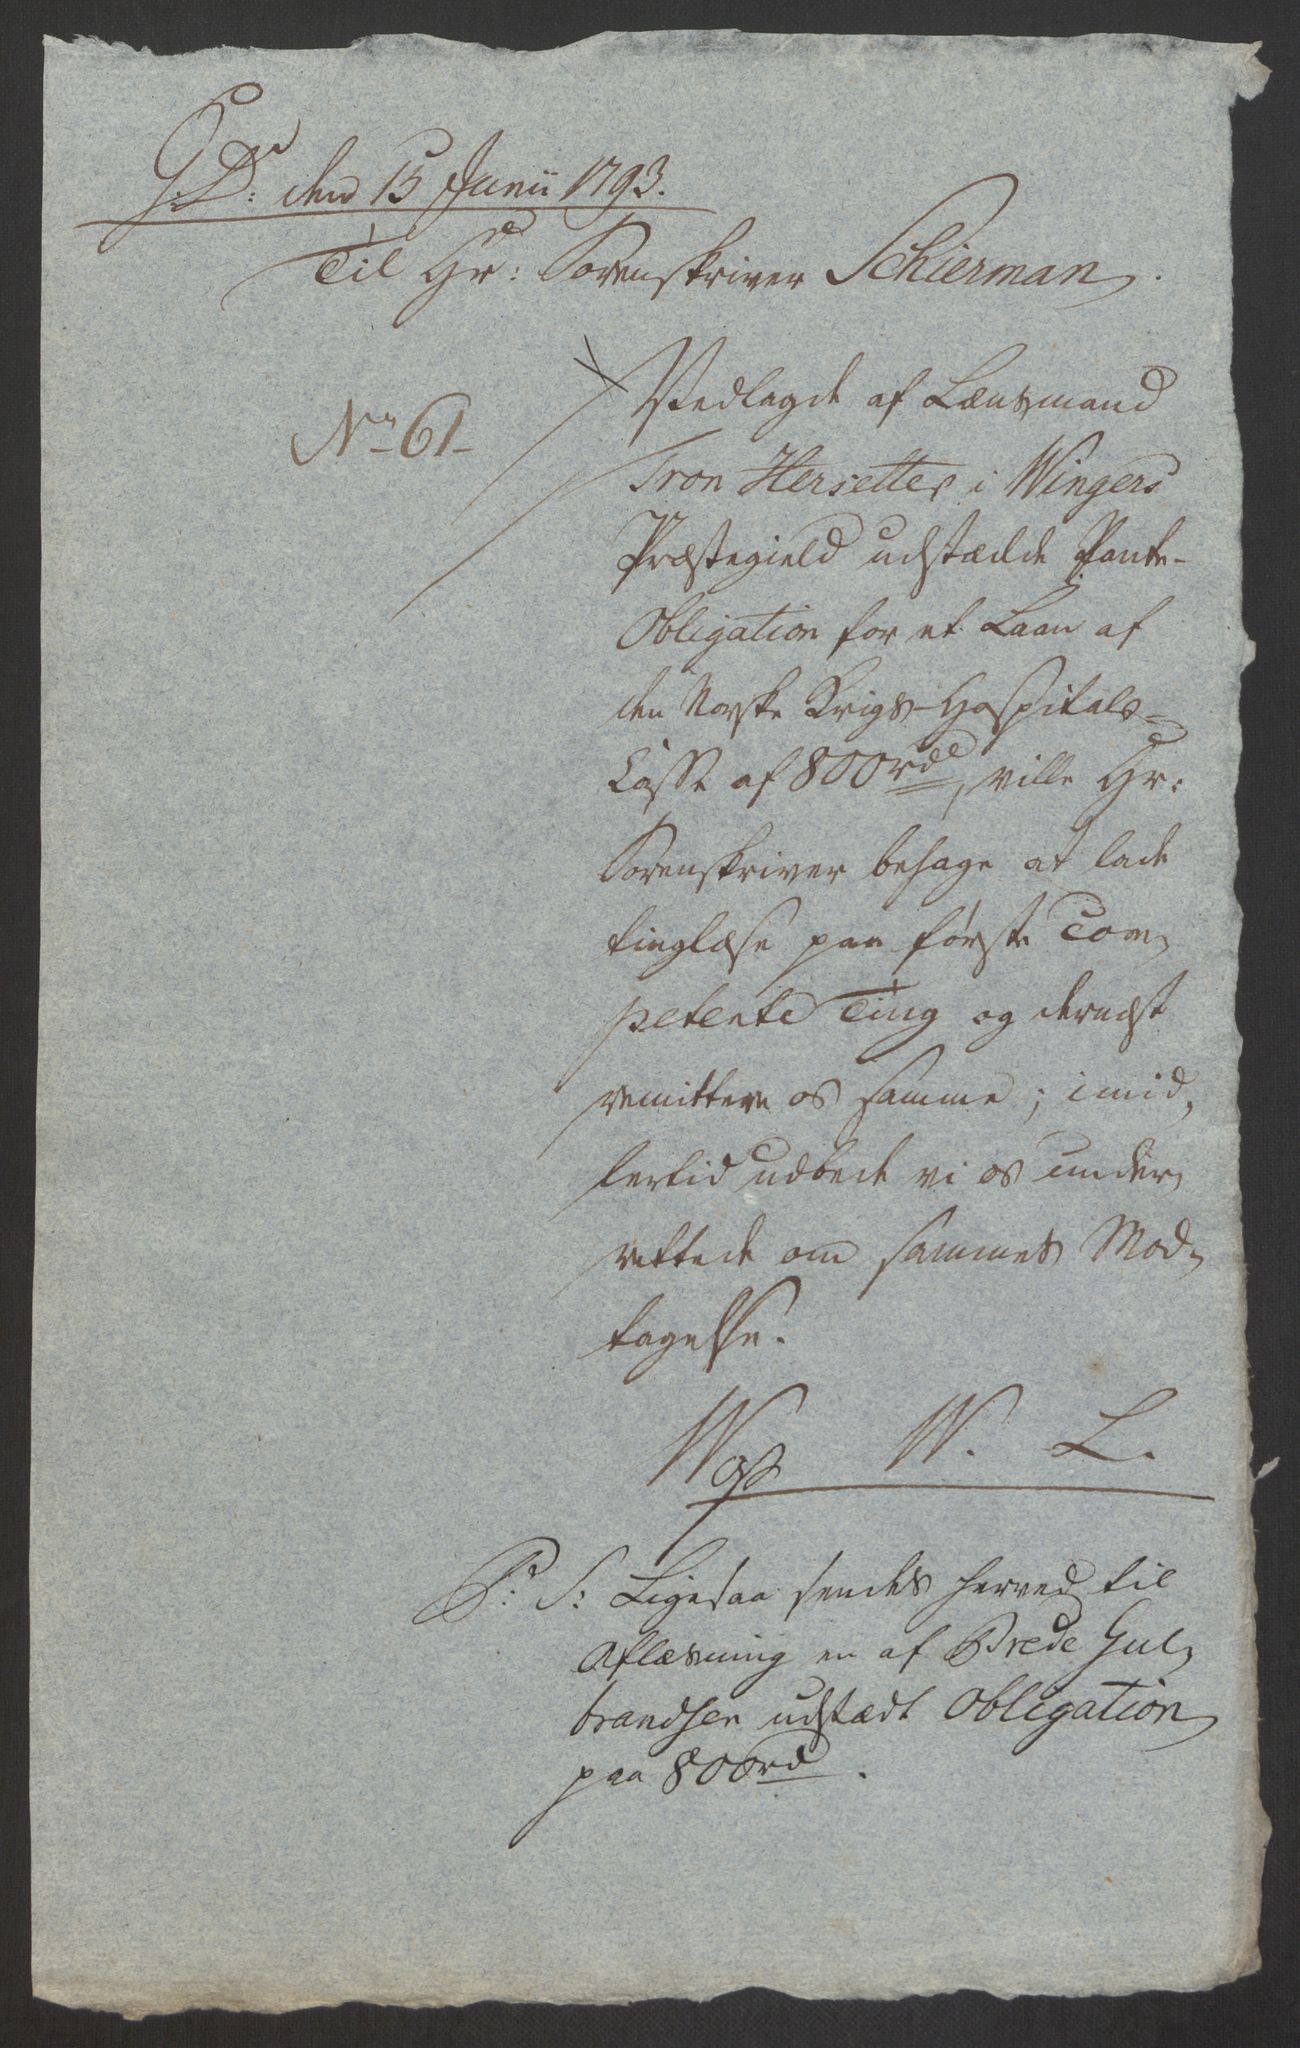 G: D: den 15 Junii 1793.
Til Hr: Sorenskriver Schierman.
No 61
Vedlagde af Lænsmand
Tron Hersetter i Wingers
Præstegield udstædde Pante-
Obligation for et Laan af
den Norske Krigs-Hospitals-
Casse af 800 rd, ville Hr:
Sorenskriver behage at lade
tinglæse paa første Com,
petente Ting og dernæst
remittere os samme; imid,
lertid udbede vi os under,
rettede om sammes Mod,
tagelse.
W. L.
P: S: Ligesaa sendes herved til
Aflæsning en af Brede Gul,
brandsen udstædt Obligation
paa 800 rd.